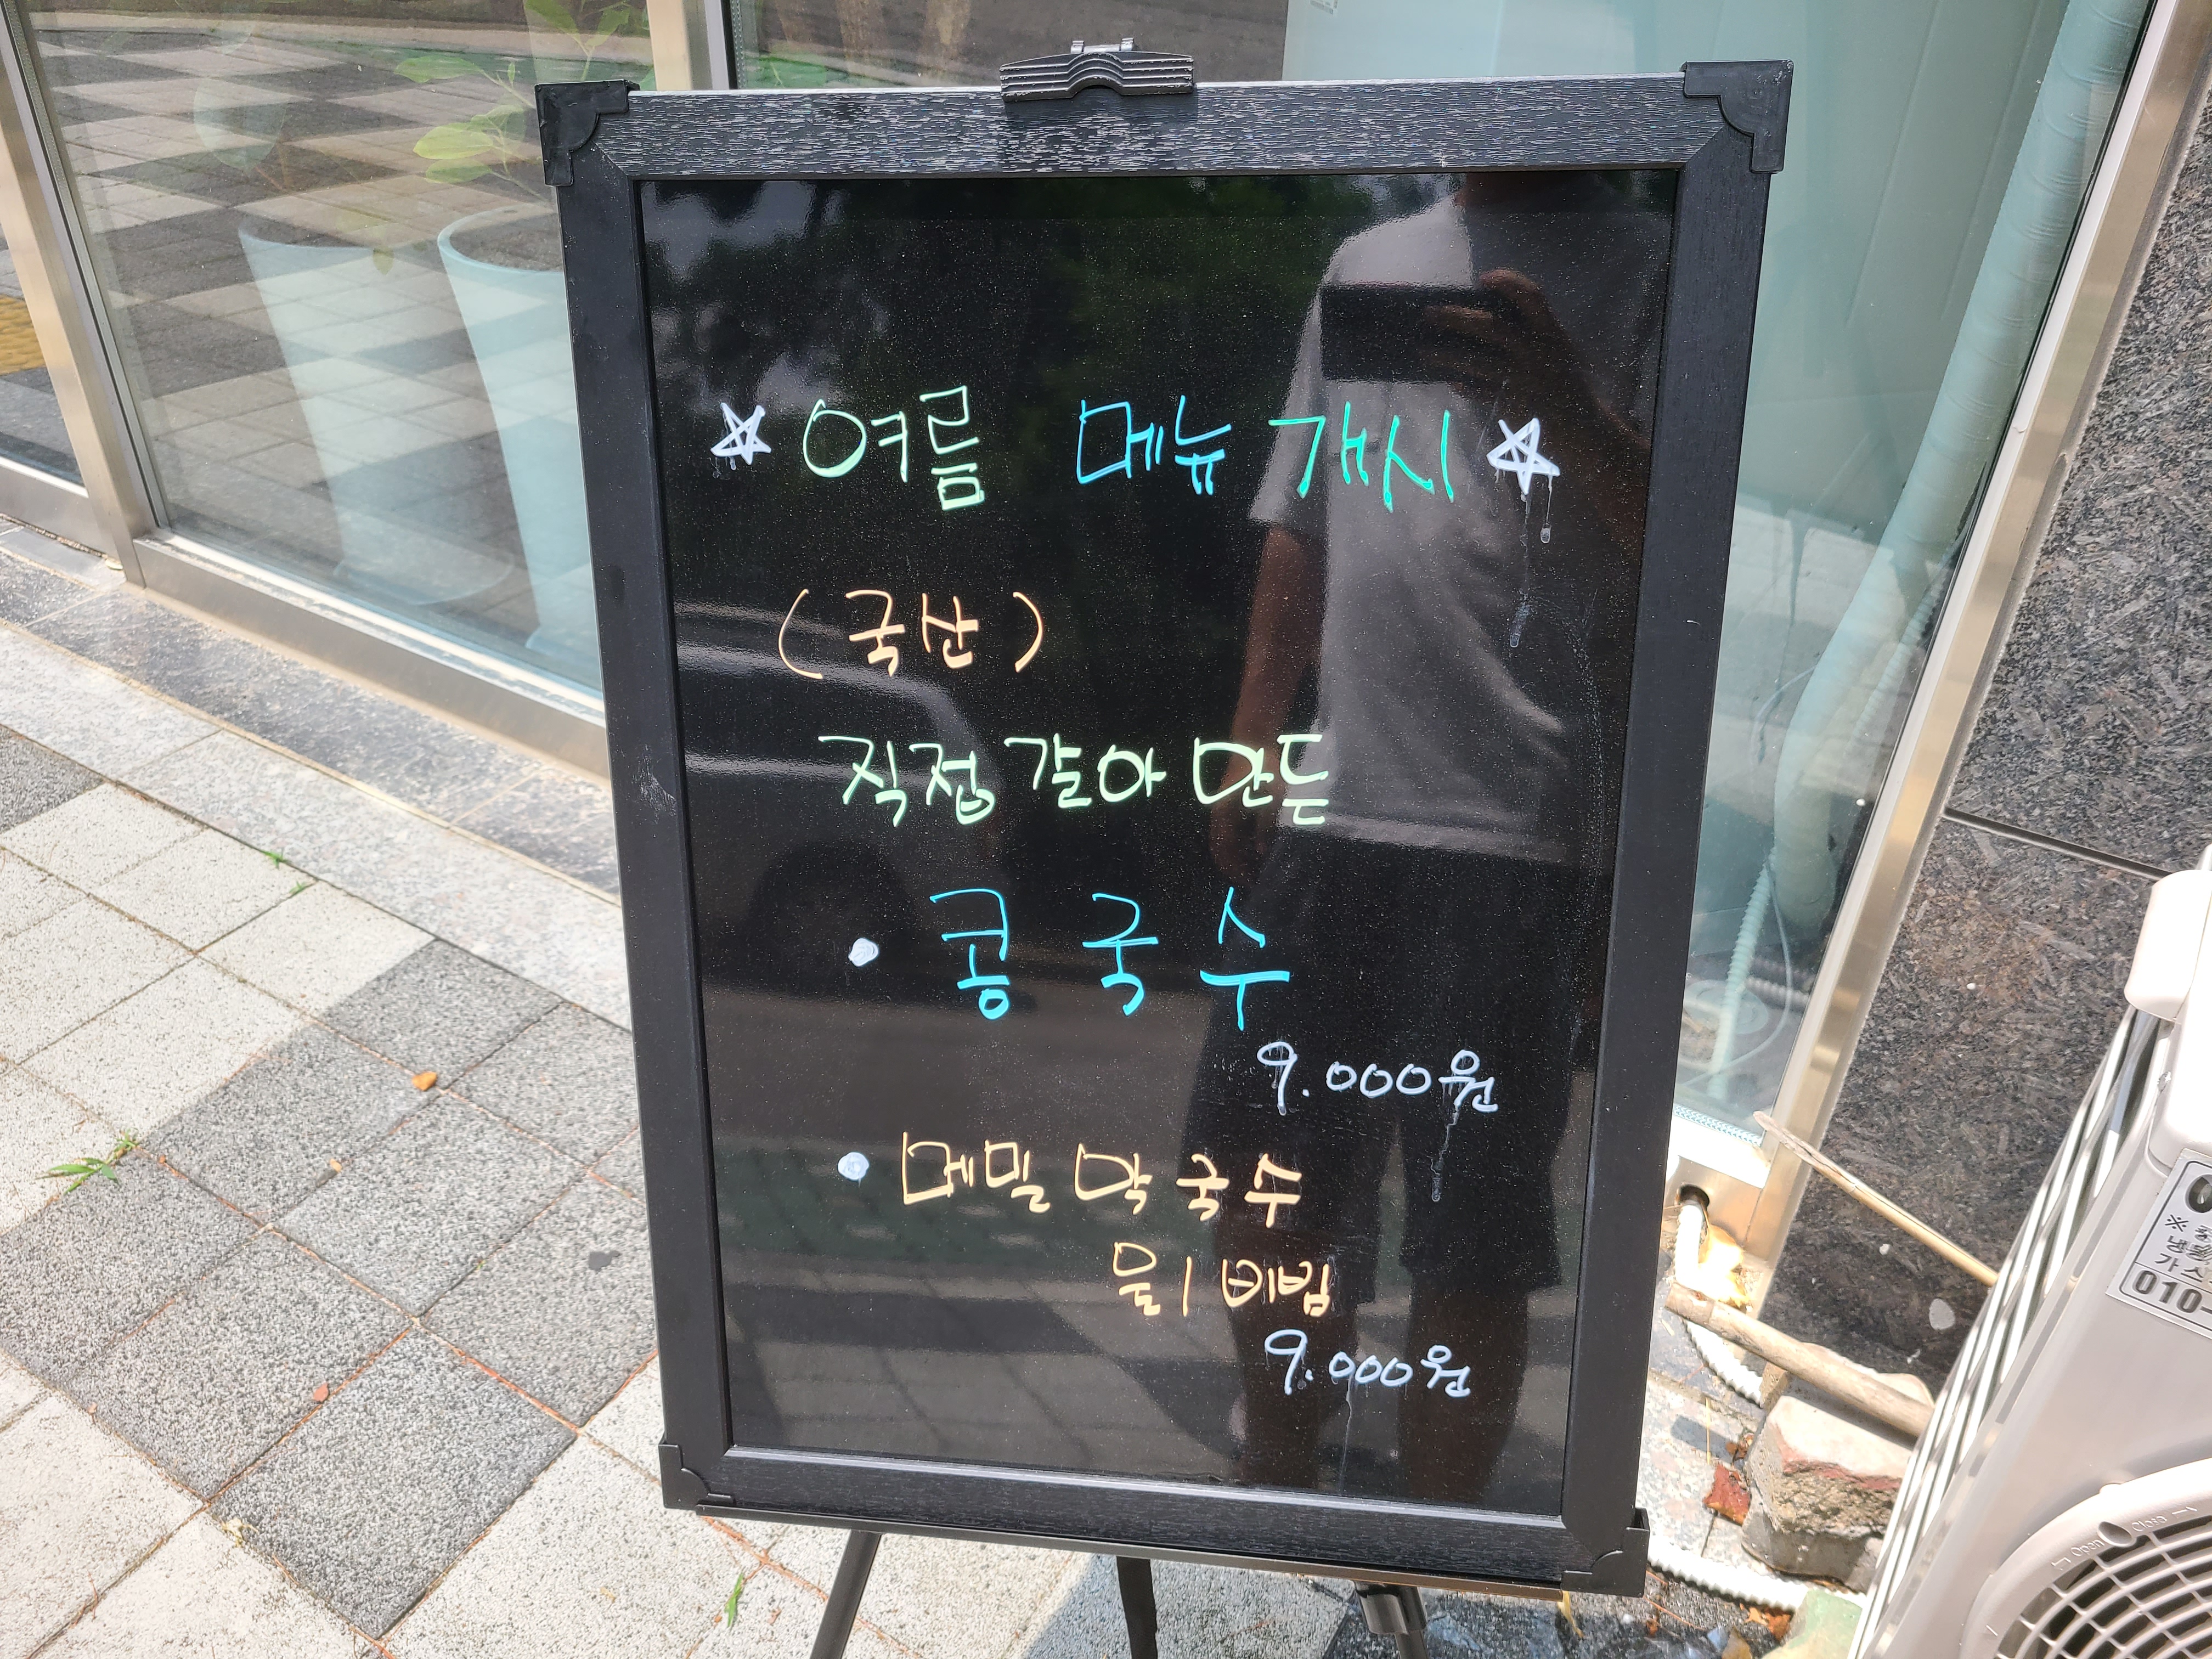 ☆ 여름 메뉴 개시 ☆
(국산)
직접 갈아 만든
• 콩국수
9.000원
• 메밀막국수
물 / 비빔
9.000원
010-
Open
Close